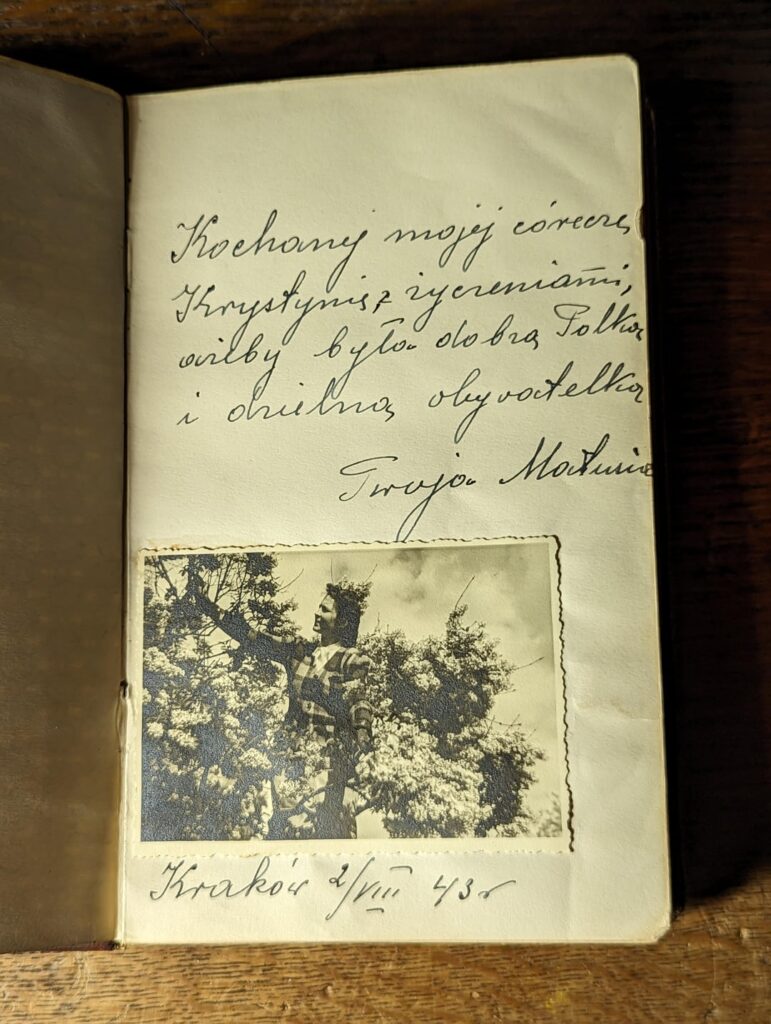 Kochanej mojej córeczce
Krystynie, z życzeniami,
ażeby była dobrą Polką
i dzielną obywatelką
Twoja Matusia
Kraków 2/VIII 43 r